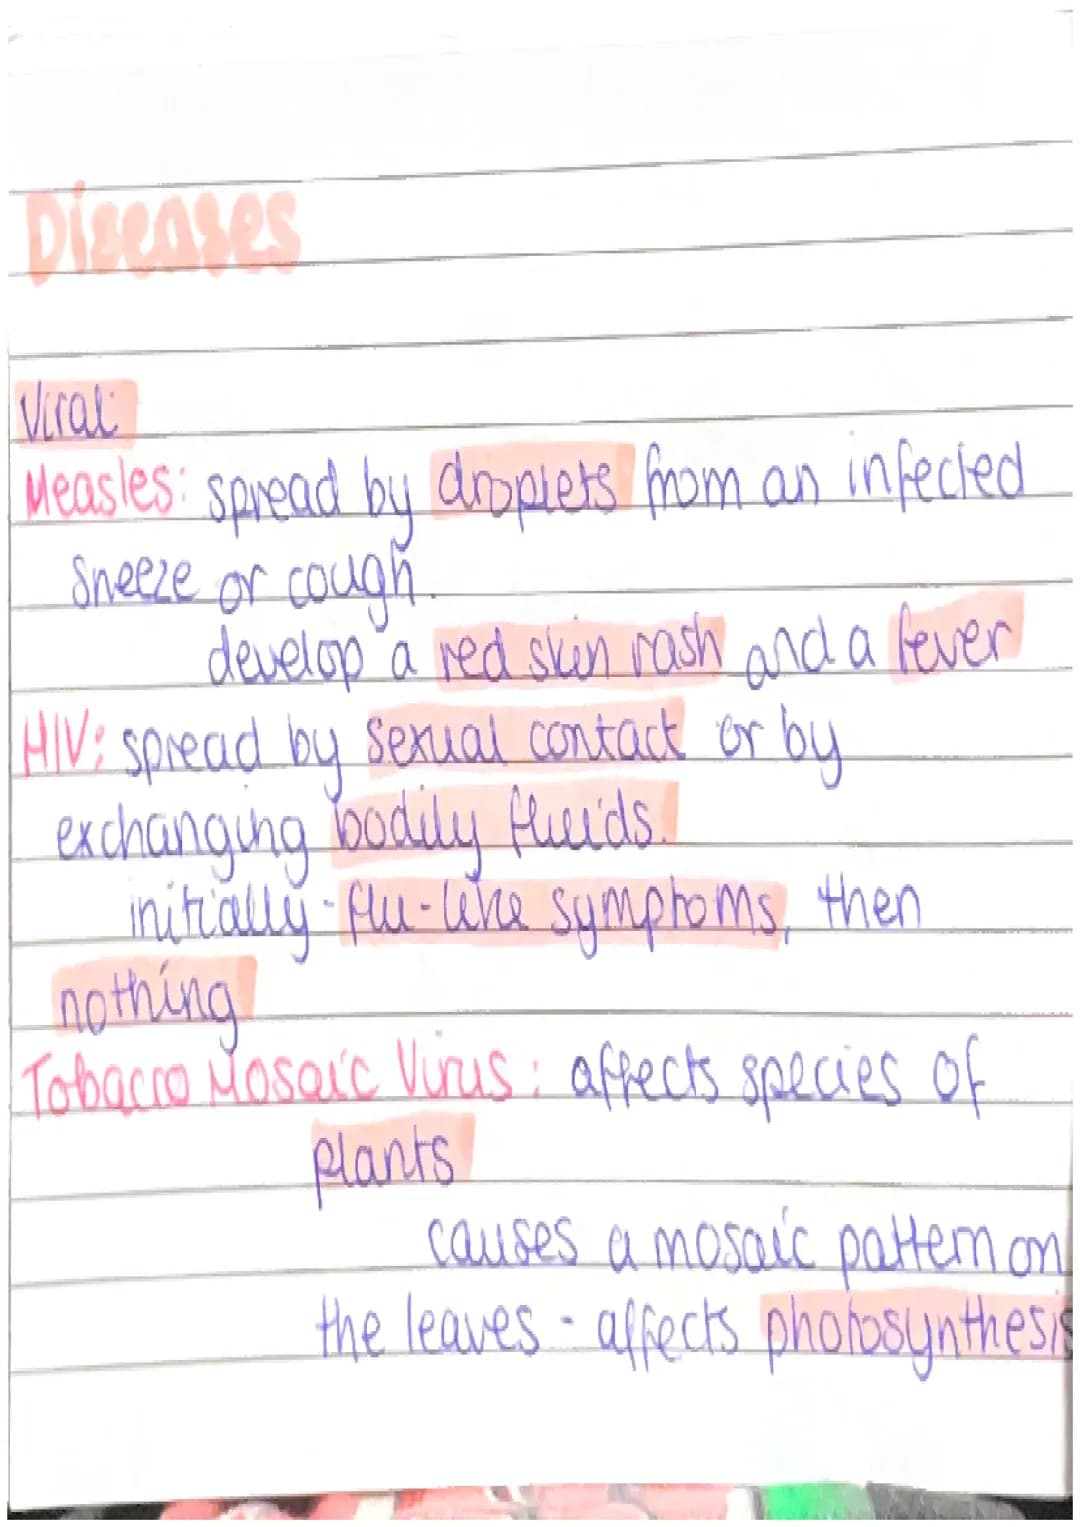 Diseases
Viral:
Measles: spread by droplets from an infected
sneeze or cough.
develop a red skin rash and a fever
HIV: spread by sexual contact or by
exchanging bodily fluids.
initially - flu-like symptoms, then
nothing
Tobacco Mosaic Virus: affects species of
plants
causes a mosaic pattern on
the leaves - affects photosynthesis